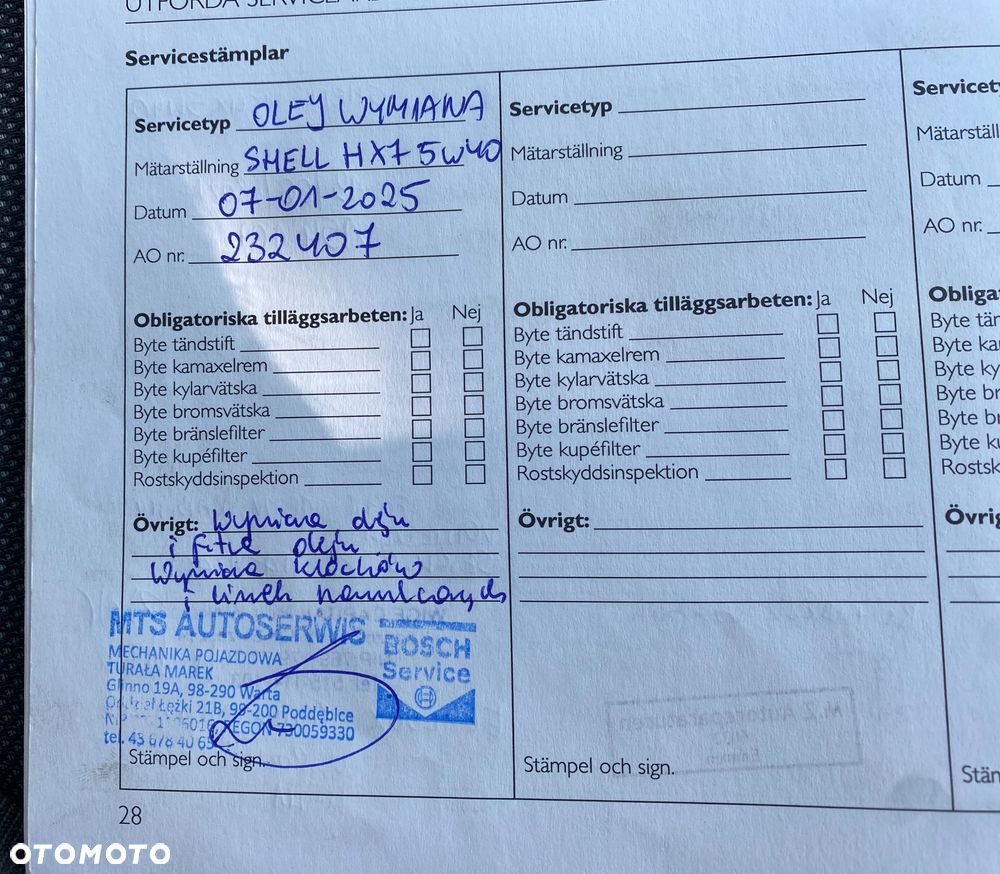 UTFÖRDA SERVICEAR
Servicestämplar
Servicetyp OLEJ WYMIANA
Mätarställning SHELL HX7 5W40
Datum 07-01-2025
AO nr. 232407
Obligatoriska tilläggsarbeten: Ja Nej
Byte tändstift
Byte kamaxelrem
Byte kylarvätska
Byte bromsvätska
Byte bränslefilter
Byte kupéfilter
Rostskyddsinspektion
Övrigt: Wymiana oleju
i filtra oleju
Wymiana klocków
i linek hamulcowych
MTS AUTOSERWIS
MECHANIKA POJAZDOWA
TURAŁA MAREK
Glinno 19A, 98-290 Warta
Oddział Łężki 21B, 99-200 Poddębice
REGON 730059330
tel. 43 678 40 65
BOSCH
Service
Stämpel och sign.
28
Servicetyp
Mätarställning
Datum
AO nr.
Obligatoriska tilläggsarbeten: Ja Nej
Byte tändstift
Byte kamaxelrem
Byte kylarvätska
Byte bromsvätska
Byte bränslefilter
Byte kupéfilter
Rostskyddsinspektion
Övrigt:
Stämpel och sign.
Servicety
Mätarställ
Datum
AO nr.
Obliga
Byte tän
Byte ka
Byte ky
Byte br
Byte br
Byte ku
Rostsk
Övrig
Stän
OTOMOTO